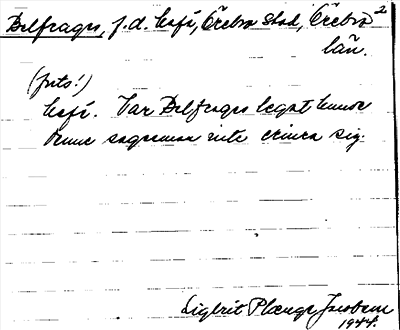 Belfrages, f.d. Café, Örebro stad, Örebro 2
län.
(forts!)
Café. Var Belfrages legat kunde
denne sagesman inte erinra sig.
Sigbrit Plænge Jacobson
1944.